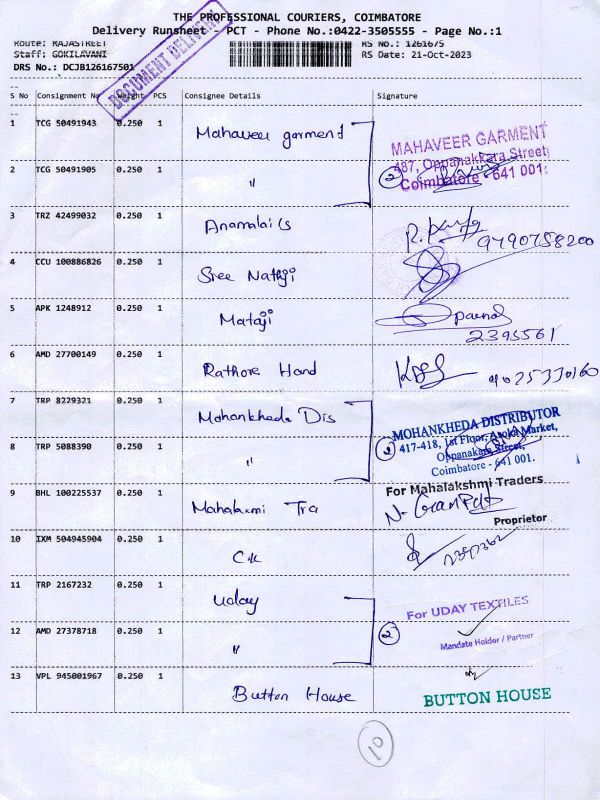 THE PROFESSIONAL COURIERS, COIMBATORE
Delivery Runsheet - PCT - Phone No.:0422-3505555 - Page No.:1
Route: RAJASTREET RS No.: 1261675
Staff: GOKILAVANI RS Date: 21-Oct-2023
DRS No.: DCJB126167501
DOCUMENT DELIVERY
S No Consignment No Weight PCS Consignee Details Signature
1 TCG 50491943 0.250 1 Mahaveer garment
MAHAVEER GARMENT
487, Oppanakkara Street,
Coimbatore - 641 001.
2 TCG 50491905 0.250 1 "
2
3 TRZ 42499032 0.250 1 Anamalai Cs
9790758200
4 CCU 100886826 0.250 1 Sree Nathji
5 APK 1248912 0.250 1 Mataji
2395561
6 AMD 27700149 0.250 1 Rathore Hand
9025330160
7 TRP 8229321 0.250 1 Mohankheda Dis
MOHANKHEDA DISTRIBUTOR
417-418, 1st Floor, Asoka Market,
Oppanakara Street,
Coimbatore - 641 001.
8 TRP 5088390 0.250 1 "
2
9 BHL 100225537 0.250 1 Mahalaxmi Tra
For Mahalakshmi Traders
Proprietor
10 IXM 504945904 0.250 1 CK
11 TRP 2167232 0.250 1 Uday
For UDAY TEXTILES
12 AMD 27378718 0.250 1 "
2
Mandate Holder / Partner
13 VPL 945001967 0.250 1 Button House
BUTTON HOUSE
10